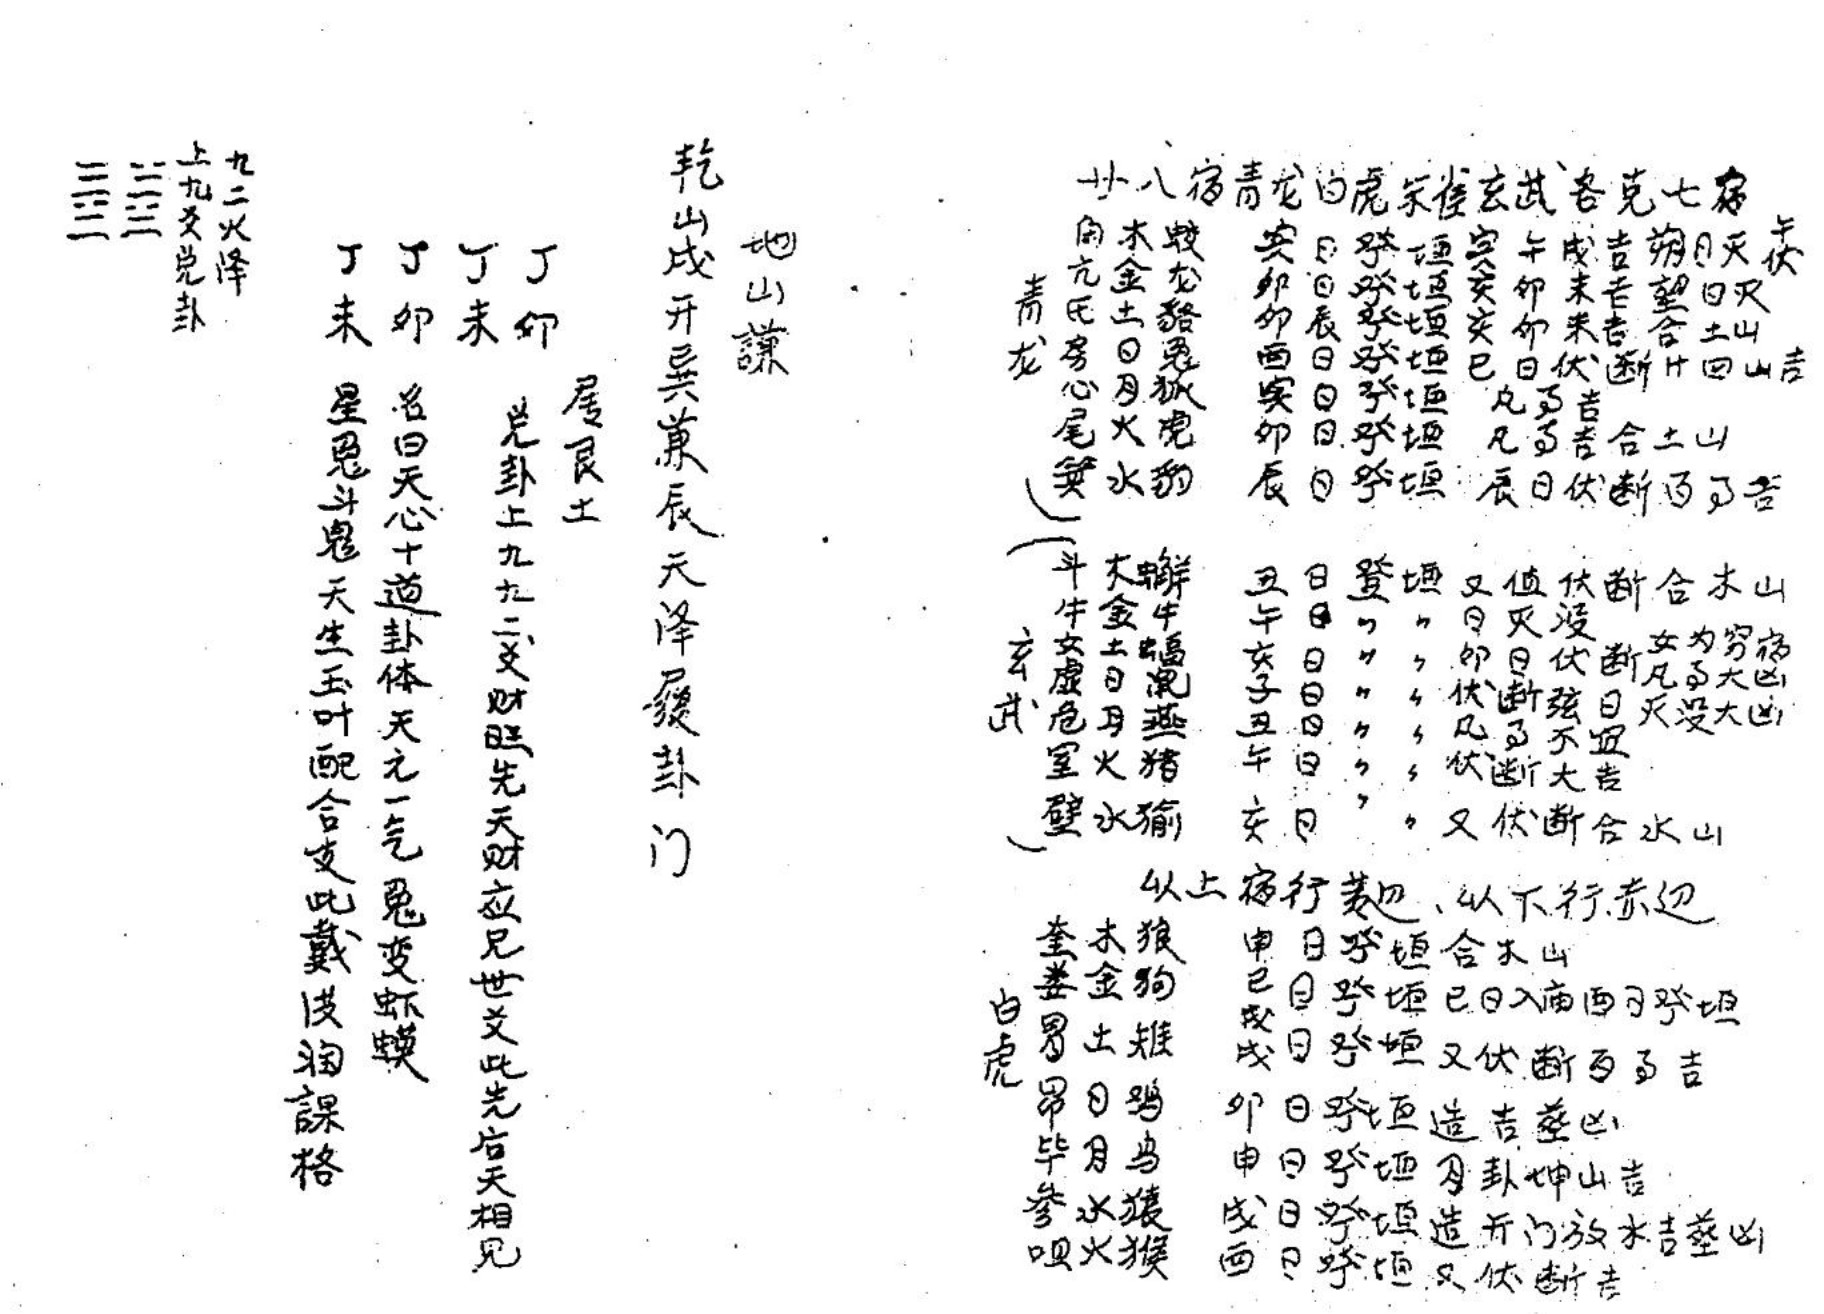 廿八宿青龙白虎朱雀玄武各克七宿
青龙
角木蛟 寅日登垣 寅午戌吉 朔日灭 午伏
亢金龙 卯日登垣 亥卯未吉 望日灭
氐土貉 卯辰登垣 亥卯未吉 合土山
房日兔 酉日登垣 巳日伏断 山吉
心月狐 寅日登垣 凡事吉
尾火虎 卯日登垣 凡事吉 合土山
箕水豹 辰日登垣 辰日伏断 吉
玄武
斗木獬 丑日登垣 又值伏断合木山
牛金牛 午日〃〃 日灭没
女土蝠 亥日〃〃 卯日伏断 女为穷宿
虚日鼠 子日〃〃 伏断弦日 凡事大凶
危月燕 丑日〃〃 凡事不宜 灭没大凶
室火猪 午日〃〃 伏断大吉
壁水㺄 亥日〃〃 又伏断合水山
以上宿行黄边、以下行赤边
白虎
奎木狼 申日登垣合木山
娄金狗 巳戌日登垣巳日入庙酉日登垣
胃土雉 戌日登垣又伏断 吉
昴日鸡 卯日登垣造吉葬凶
毕月乌 申日登垣 月卦坤山吉
参水猿 戌日登垣造开门放水吉葬凶
咀火猴 酉日登垣又伏断吉
地山謙
乾山戌开巽兼辰天泽履卦门
居艮土
丁卯 兑卦上九九二爻财临先天财应兄世爻此先后天相见
丁未
丁卯 名曰天心十道卦体天元一气兔变虾蟆
丁未 星兔斗鬼天生玉叶配合支此戴 課格
九二火泽
上九爻兑卦